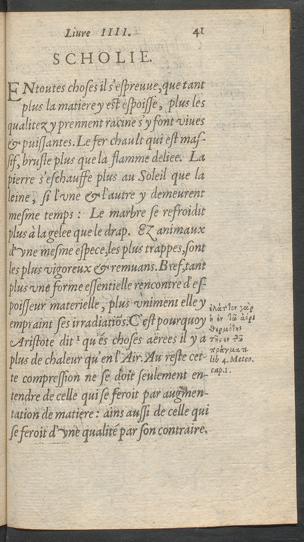 Liure IIII. 41
SCHOLIE.
ENtoutes choses il s'espreuue, que tant
plus la matiere y est espoisse, plus les
qualitez y prennent racine s'y font viues
& puissantes. Le fer chault qui est mas-
sif, brusle plus que la flamme deliee. La
pierre s'eschauffe plus au Soleil que la
leine, si l'vne & l'autre y demeurent
mesme temps : Le marbre se refroidit
plus à la gelee que le drap. Ez animaux
d'vne mesme espece, les plus trappes, sont
les plus vigoreux & remuans. Bref, tant
plus vne forme essentielle rencontre d'es-
poisseur materielle, plus vniment elle y
empraint ses irradiatiōs. C'est pourquoy
Aristote dit ¹ qu'es choses aërees il y a
plus de chaleur qu'en l'Air. Au reste cet-
te compression ne se doit seulement en-
tendre de celle qui se feroit par augmen-
tation de matiere : ains aussi de celle qui
se feroit d'vne qualité par son contraire.
lib 4. Meteo.
cap. 1.